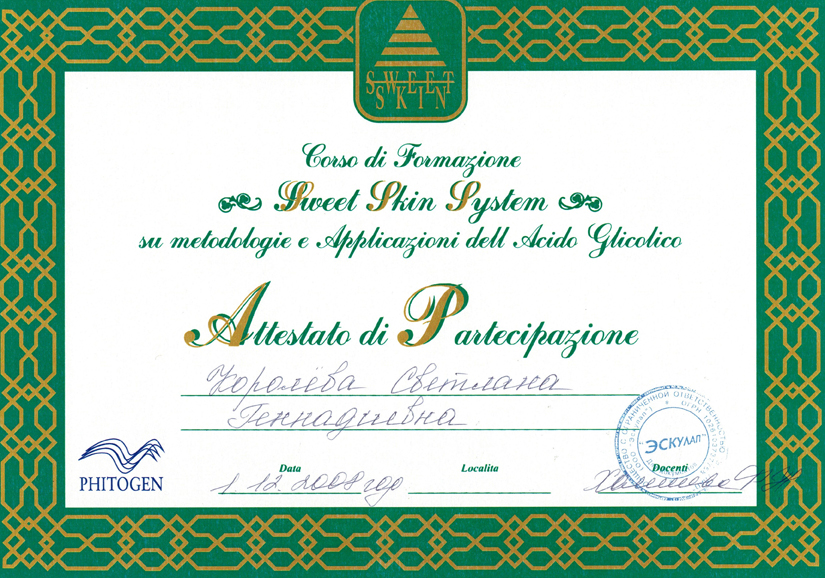 SWEET
SKIN
Corso di Formazione
Sweet Skin System
su metodologie e Applicazioni dell Acido Glicolico
Attestato di Partecipazione
Королёва Светлана
Геннадиевна
PHITOGEN
Data
1 12 2008 год
Localita
Docenti
ОБЩЕСТВО С ОГРАНИЧЕННОЙ ОТВЕТСТВЕННОСТЬЮ
ЭСКУЛАП